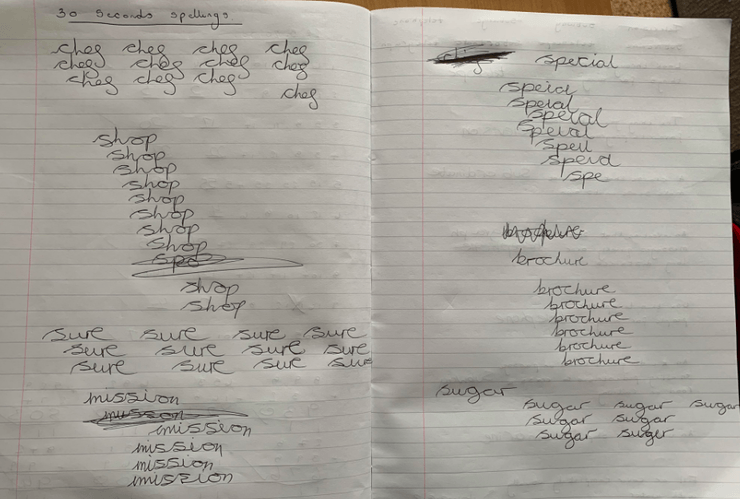 30 Seconds spellings
cheg cheg cheg cheg
cheg cheg cheg cheg
cheg cheg cheg
cheg
shop
shop
shop
shop
shop
shop
shop
shop
shop
shop
sure sure sure sure
sure sure sure sure
sure sure sure sure
mission
mission
mission
mission
mission
special
speial
speial
spell
spe
brochure
brochure
brochure
brochure
brochure
brochure
brochure
sugar
sugar sugar sugar
sugar sugar
sugar suger